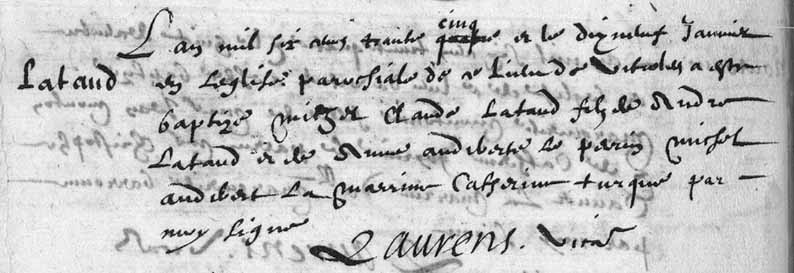 cinq
Lan mil six cens trante quatre et le dixneuf Janvier
Lataud
en leglise parochiale de ce lieu de Vitroles a este
baptize michel Claude Lataud filz de Andre
Lataud et de Anne audiberte le perin michel
audibert La marrine Catherine turque par
moy signe
Laurens. vic.re